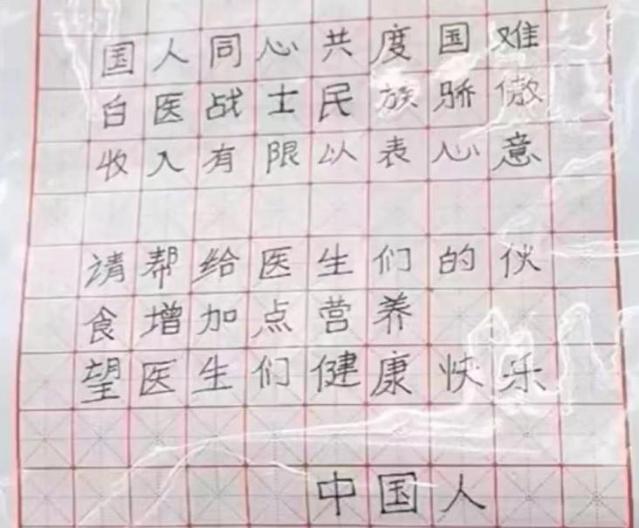 国人同心共度国难
白医战士民族骄傲
收入有限以表心意
请帮给医生们的伙
食增加点营养
望医生们健康快乐
中国人